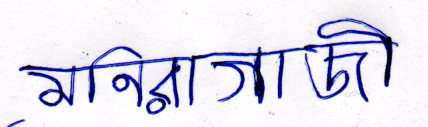 মনিরা গাজী